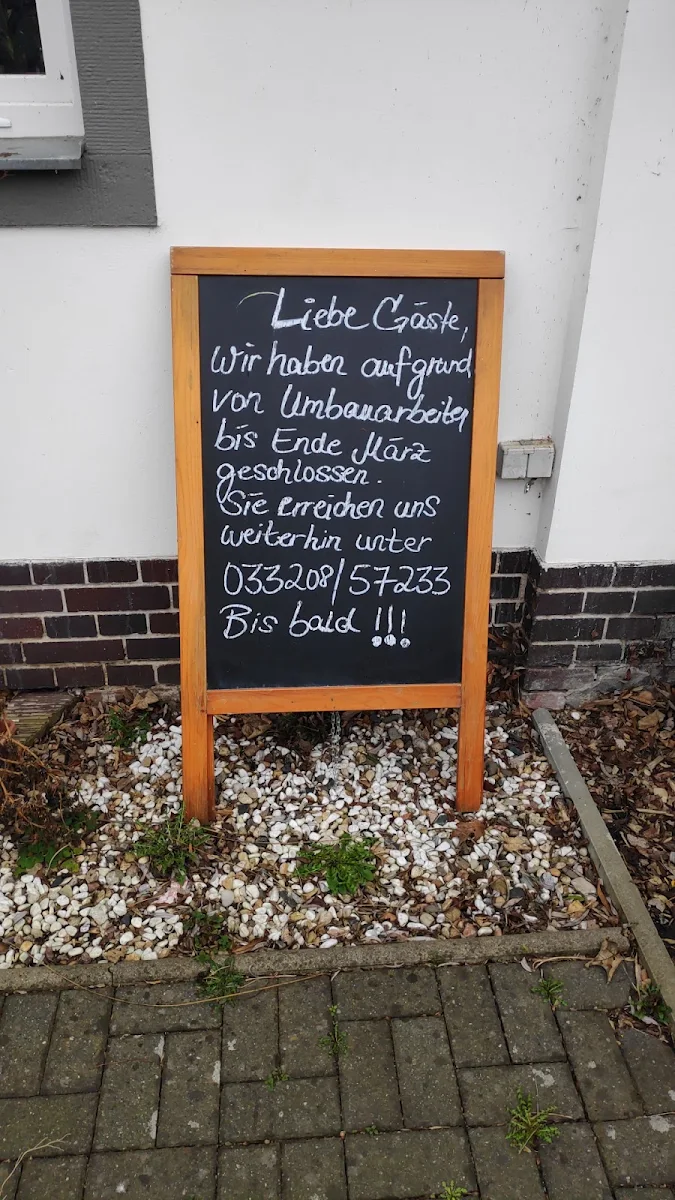 Liebe Gäste,
Wir haben aufgrund
von Umbauarbeiten
bis Ende März
geschlossen.
Sie erreichen uns
weiterhin unter
033208/57233
Bis bald !!!